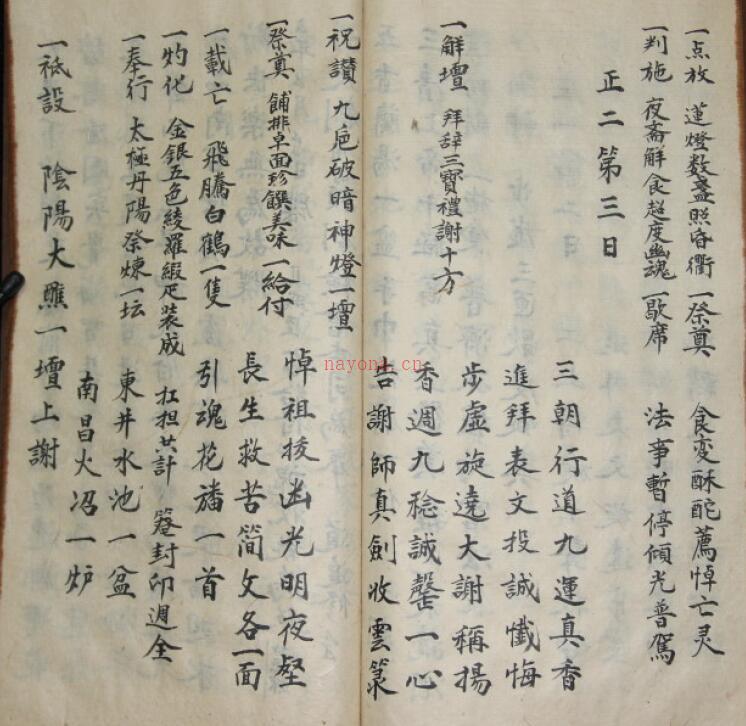 一点放 蓮燈数盞照昏衢 一祭奠 食变酥酡薦悼亡灵
一判施 夜斋解食超度幽魂 一歇席 法事暫停傾光普駕
正二第三日
三朝行道九運真香
進拜表文投誠懺悔
一解壇 拜辞三寶禮謝十方 步虚旋遶大謝稱揚
香週九稔誠罄一心
告謝師真劍收雲篆
一祝讃 九巵破暗神燈一壇 悼祖拔幽光明夜壑
一祭奠 餔排卓面珍饌美味 一給付 長生救苦簡文各一面
一載亡 飛騰白鶴一隻 引魂花旛一首
一灼化 金銀五色綾羅緞疋装成 扛担共計 篭封印週全
一奉行 太極丹陽祭煉一坛 東井水池一盆
南昌火沼一炉
一祗設 陰陽大醮一壇上謝
nayona.cn